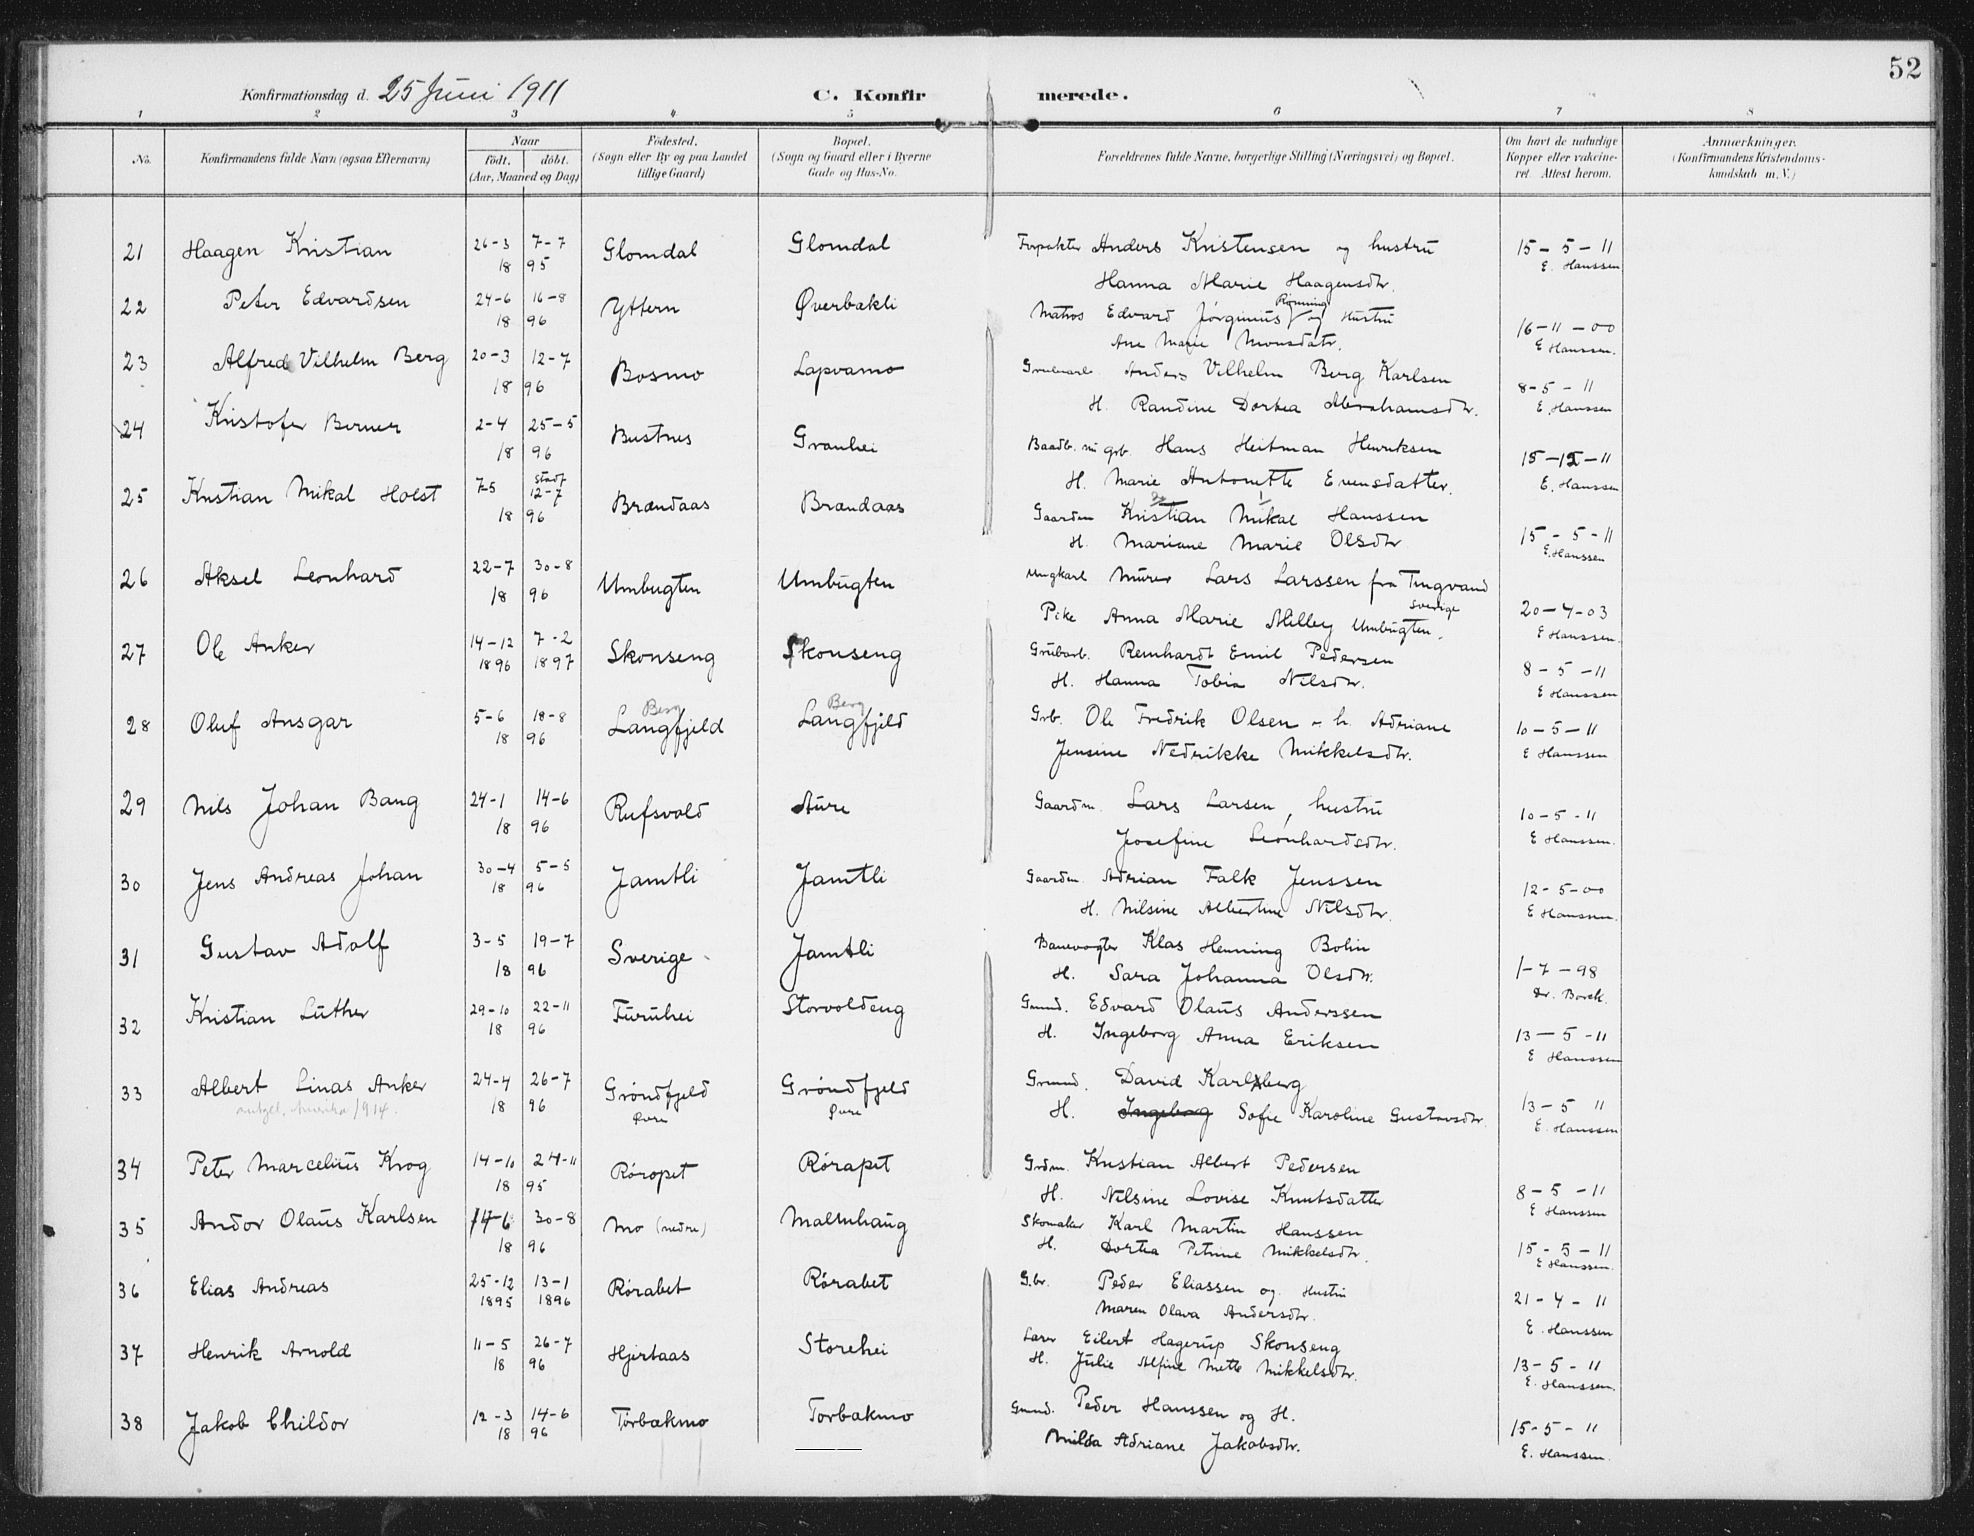 52
Konfirmationsdag d. 25 Juni 1911 C. Konfirmerede.
1 2 3 4 5 6 7 8
No. Konfirmandens fulde Navn (ogsaa Efternavn) Naar født. døbt. (Aar, Maaned og Dag) Fødested. (Sogn eller By og paa Landet tillige Gaard) Bopæl. (Sogn og Gaard eller i Byerne Gade og Hus-No. Forældrenes fulde Navne, borgerlige Stilling (Næringsvei) og Bopæl. Om havt de naturlige Kopper eller vakcineret. Attest herom. Anmærkninger. (Konfirmandens Kristendomskundskab m. V.)
21 Haagen Kristian 26-3 7-7 Glomdal Glomdal Forpakter Anders Kristensen og hustru 15-5-11
18 95 Hanna Marie Haagensdtr. E. Hanssen
22 Peter Edvardsen 24-6 16-8 Yttern Øverbakli Matros Edvard Jørginius Rønning og Hustru 16-11-00
18 96 Ane Marie Monsdatr. E Hanssen.
23 Alfred Vilhelm Berg 20-3 12-7 Bosmo Lapvamo Anders Vilhelm Berg Karlsen 8-5-11
18 96 H. Randine Dortea Abrahamsdtr. E. Hanssen
24 Kristofer Berner 2-4 25-5 Bustnes Granhei Baadb. Hans Heitman Henriksen 15-12-11
18 96 H. Marie Antonette Evensdatter. E. Hanssen
25 Kristian Mikal Holst 7-5 12-7 Brændaas Brændaas Gaardm Kristian Mikal Hanssen 15-5-11
18 96 H. Mariane Marie Olsdtr E. Hanssen
26 Aksel Leonhard 22-7 30-8 Umbugten Umbugten Ungkarl Murer Lars Larssen fra Tingvand Sverige 20-4-03
18 96 Pike Anna Marie Milley Umbugten. E Hanssen.
27 Ole Anker 14-12 7-2 Skonseng Skonseng Grubarb. Reinhardt Emil Pedersen 8-5-11
1896 1897 H. Hanna Tobia Nilsdtr. E Hanssen
28 Oluf Ansgar 5-6 18-8 Langfjeld Berg Langfjeld Berg Grb. Ole Fredrik Olsen - h. Adriane 10-5-11
18 96 Jensine Nedrikke Mikkelsdtr. E Hanssen
29 Nils Johan Bang 24-1 14-6 Rufsvold Aure Gaardm. Lars Larsen, hustru 10-5-11
18 96 Josefine Leonhardsdtr. E Hanssen.
30 Jens Andreas Johan 30-4 5-5 Jamtli Jamtli Gaardm. Adrian Falk Jenssen 12-5-00
18 96 H. Nilsine Albertine Nilsdtr. E Hanssen.
31 Gustav Adolf 3-5 19-7 Sverige Jamtli Banevogter Klas Henning Bolin 1-7-98
18 96 H. Sara Johanna Olsdtr. Dr. Borch.
32 Kristian Luther 29-10 22-11 Furuhei Storvoldeng Gmmd. Edvard Olaus Anderssen 13-5-11
18 96 H. Ingeborg Anna Eriksen E Hanssen
33 Albert Linas Anker 24-4 26-7 Grøndfjeld Grøndfjeld Grmmd. David Karlsberg 13-5 11
utgel. Amerika 1914. 18 96 Øvre Øvre H. Ingeborg Sofie Karoline Gustavsdtr. E. Hanssen
34 Peter Marcelius Krog 14-10 24-11 Røropet Rørapet Grdm. Kristian Albert Pedersen 8-5-11
18 95 H. Nilsine Lovise Knutsdatter E Hanssen
35 Andor Olaus Karlsen 14-6 30-8 Mo (nedre) Malmhaug Skomaker Karl Martin Hanssen 15-5-11
18 96 H. Dortea Petrine Mikkelsdtr. E Hanssen.
36 Elias Andreas 25-12 13-1 Rørabet Rørabet G.br. Peder Eliassen og Hustru 21-4-11
1895 1896 Maren Olava Andersdtr. E. Hanssen
37 Henrik Arnold 11-5 26-7 Hjertaas Storehei Lærer Eilert Hagerup Skonseng 13-5-11
18 96 H. Julie Alfine Mette Mikkelsdtr. E. Hanssen.
38 Jakob Childor 12-3 14-6 Torbækmo Torbækmo Gmmd. Peder Hanssen og H. 15-5-11
18 96 Milda Adriane Jakobsdtr. E. Hanssen.